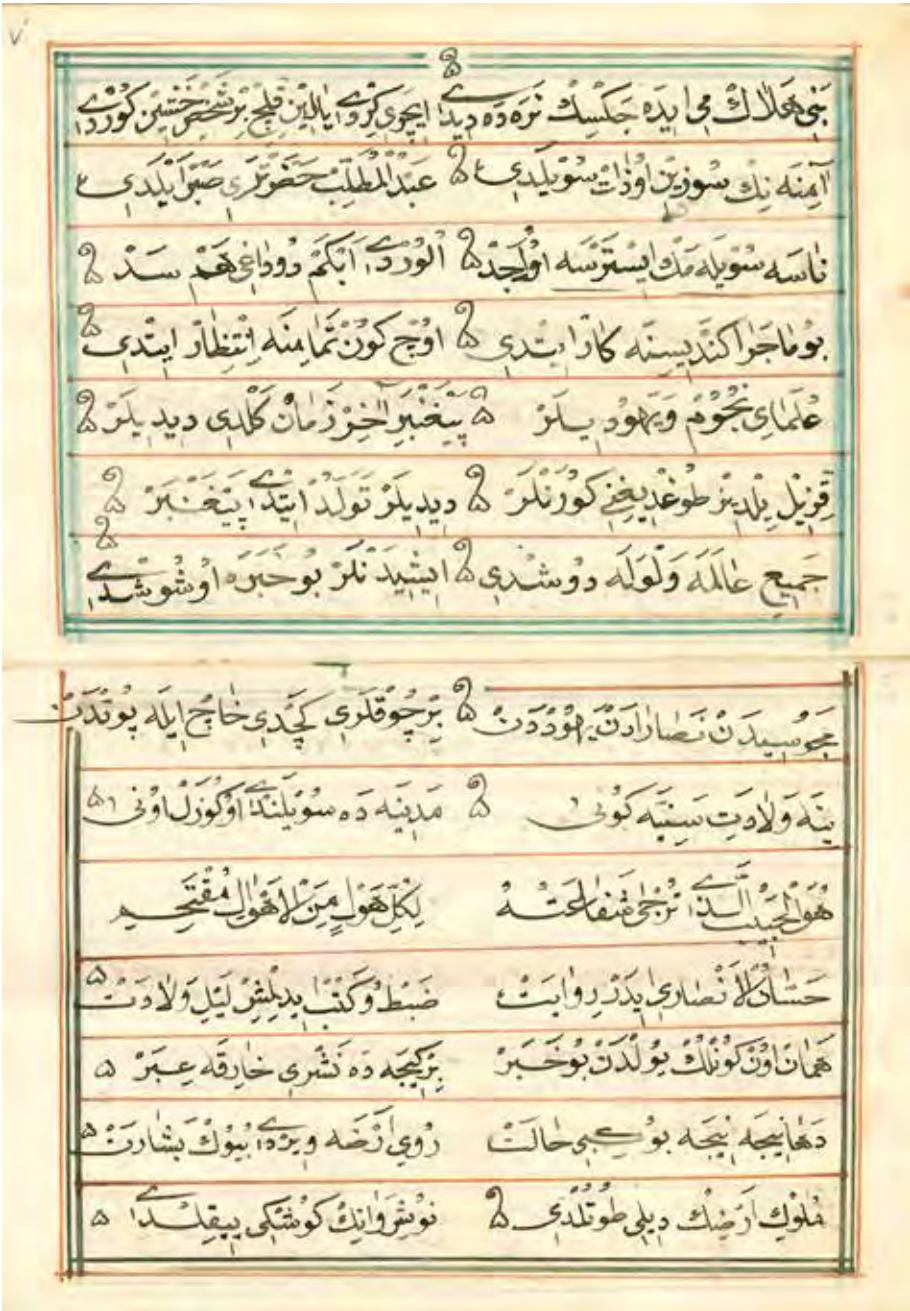 ٧
بَنِى هَلَاكْ مِى ايدَه جَكسِكْ نَرَه دَه دِيدِى ايچرى كِردِى يالين قلِج بِر شَخص خشين كُوردى
آمِنَه نِكْ سوزين اوزات سُويلَدِى عَبدُ المُطَّلِبْ حَضرَتلَرى صَبر ايلَدِى
ناسَه سُويلَه مَكْ ايستَرسَه اولجد اَلوردِى اَبكَم دوداغى هَم سَدْ
بو مَاجَرا كَنديسِنَه كار ايتدِى اوچ كون تمامِنَه اِنتِظار ايتدِى
عُلَماىِ نُجُومْ وَ يَهود يلَر پيغَمبَرِ آخِر زَمانْ كَلدِى ديديلَر
قِزيل يِلديز طوغديغِنى كورَنلَر ديديلَر تَوَلُّد ايتدِى پيغَمبَر
جَميعِ عالَمَه وَلوَلَه دوشدِى ايشيدَنلَر بو خَبَرَه اوشوشدِى
مجوسيدَنْ نَصارادَنْ يهوددَنْ بِر چوقلَرِى كَچدِى خاچ ايلَه پوتدَنْ
يِنَه وَلادَتِ سَنِيَّه كونى مَدينَه دَه سويلَندِى او كوزَل اونى
هُوَ الحَبيبُ الَّذِى تُرجَى شَفاعَتُهُ لِكُلِّ هَولٍ مِنَ الاَهوالِ مُقتَحِمِ
حَسّانُ الاَنصارى ايدَر رِوايَتْ ضَبط و كَتب ايديلمِش لَيلِ وَلادَتْ
هَمان اون كونلُكْ يولدَنْ بو خَبَر بِر كيجَه دَه نَشرى خارِقَه عِبَر
دَها نيجَه نيجَه بو كِبِى حالَتْ رُوىِ اَرضَه ويردِى بُيوكْ بَشارَتْ
مُلوكِ اَرضِكْ ديلى طوتُلدِى نوشِروانِكْ كوشكى ييقِلدِى